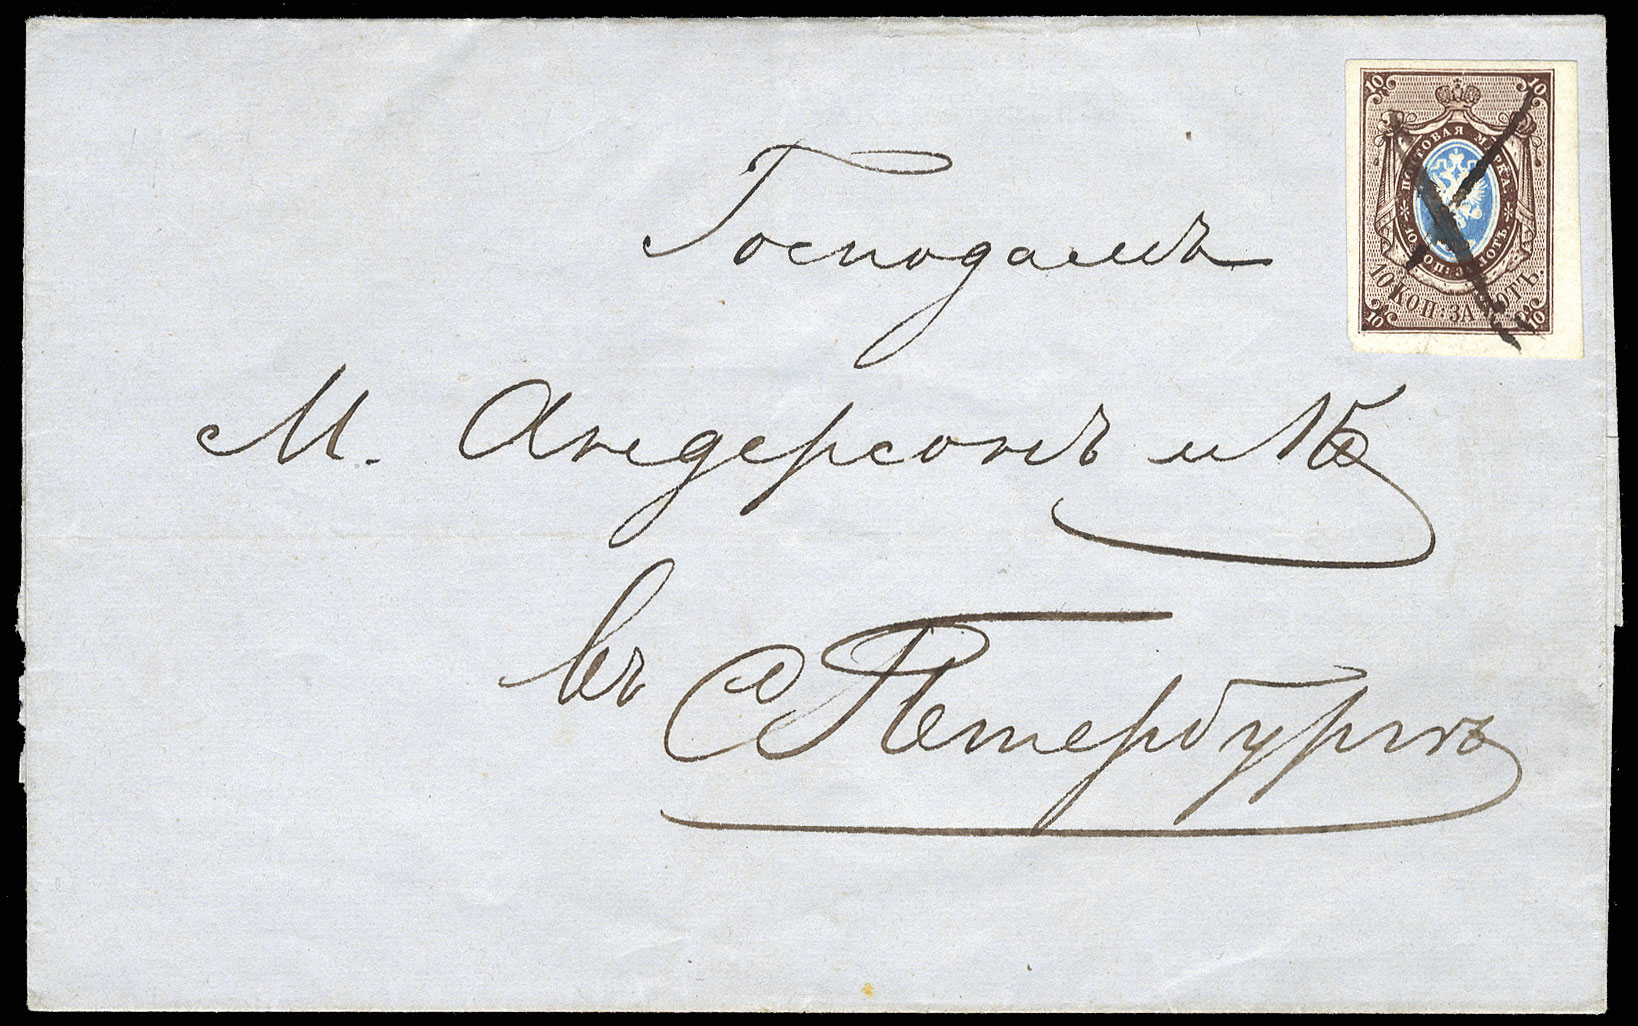 10 10
ПОЧТОВАЯ МАРКА
10 КОП: ЗА ЛОТЪ.
10 КОП: ЗА ЛОТЪ
10 10
Господамъ
М. Андерсонъ и Кº
въ С Петербургѣ